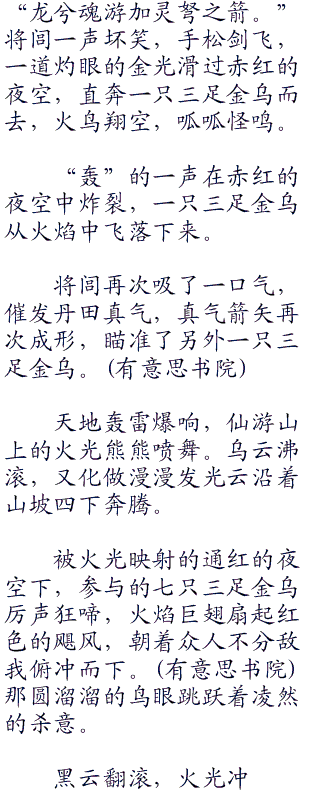 “龙兮魂游加灵弩之箭。”
将闾一声坏笑，手松剑飞，
一道灼眼的金光滑过赤红的
夜空，直奔一只三足金乌而
去，火鸟翔空，呱呱怪鸣。
“轰”的一声在赤红的
夜空中炸裂，一只三足金乌
从火焰中飞落下来。
将闾再次吸了一口气，
催发丹田真气，真气箭矢再
次成形，瞄准了另外一只三
足金乌。(有意思书院)
天地轰雷爆响，仙游山
上的火光熊熊喷舞。乌云沸
滚，又化做漫漫发光云沿着
山坡四下奔腾。
被火光映射的通红的夜
空下，参与的七只三足金乌
厉声狂啼，火焰巨翅扇起红
色的飓风，朝着众人不分敌
我俯冲而下。(有意思书院)
那圆溜溜的乌眼跳跃着凌然
的杀意。
黑云翻滚，火光冲